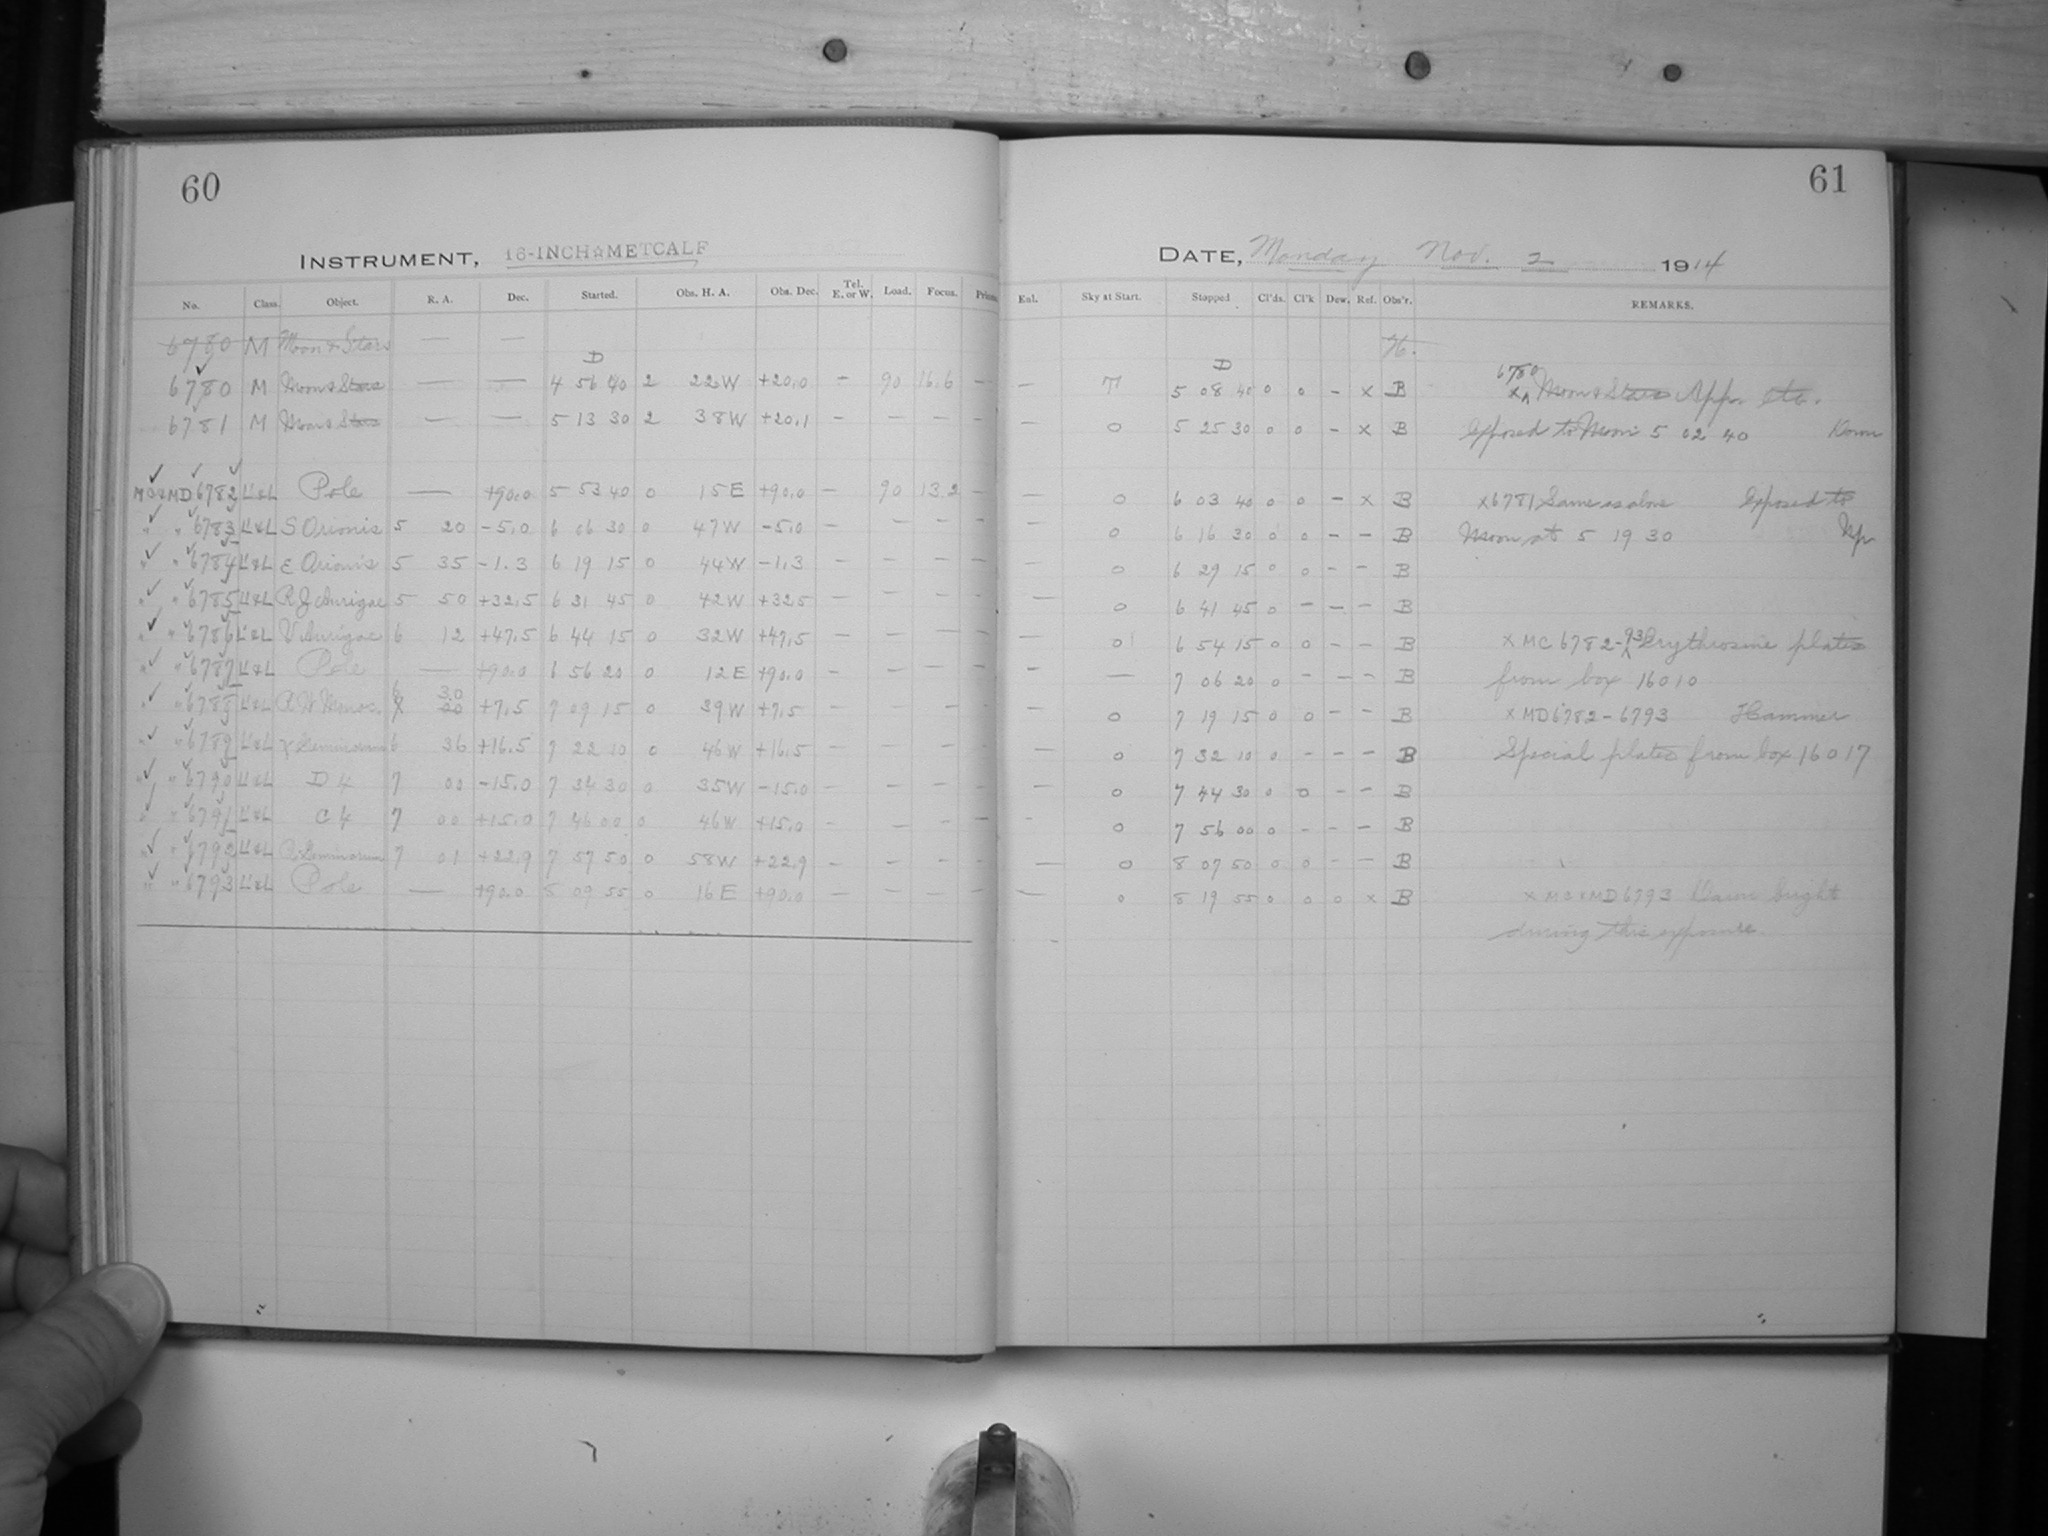 60
INSTRUMENT, 16-INCH☆METCALF
No. Class. Object. R. A. Dec. Started. Obs. H. A. Obs. Dec. Tel. E. or W. Load. Focus.
6780 M Moon & Stars — —
D
6780 M Moon & Stars — — 4 56 40 2 22W +20,0 – 90 16.6 –
6781 M Moon & Stars — — 5 13 30 2 38W +20,1 – — — — —
MC & MD 6782 L&L Pole — +90.0 5 53 40 0 15E +90,0 – 90 13.2 –
" " 6783 L&L S Orionis 5 20 –5,0 6 06 30 0 47W –5,0 – – – – –
" " 6784 L&L ε Orionis 5 35 –1.3 6 19 15 0 44W –1,3 – – – – –
" " 6785 L&L Aurigae 5 50 +32,5 6 31 45 0 42W +32,5 – – – – –
" " 6786 L&L V Aurigae 6 12 +47,5 6 44 15 0 32W +47,5 – – – – –
" " 6787 L&L Pole — +90.0 6 56 20 0 12E +90,0 – – – – –
" " 6788 L&L Monoc. 6 30 +7,5 7 09 15 0 39W +7,5 – – – – –
" " 6789 L&L Geminorum 6 36 +16.5 7 22 10 0 46W +16,5 – – – – –
" " 6790 L&L D 4 7 00 –15.0 7 34 30 0 35W –15,0 – – – – –
" " 6791 L&L C 4 7 00 +15,0 7 46 00 0 46W +15,0 – – – – –
" " 6792 L&L R Geminorum 7 01 +22,9 7 57 50 0 58W +22,9 – – – – –
" " 6793 L&L Pole — +90.0 8 09 55 0 16E +90,0 – – – – –
61
DATE, Monday Nov. 2 1914
Sky at Start. Stopped Cl'ds. Cl'k Dew. Ref. Obs'r. REMARKS.
D
— 5 08 40 0 0 – x B x 6780 Moon & Stars App. etc.
— 0 5 25 30 0 0 – x B Exposed to Moon 5 02 40
— 0 6 03 40 0 0 – x B x6781 Same as above Exposed to
— 0 6 16 30 0 0 – – B Moon at 5 19 30
— 0 6 29 15 0 0 – – B
— 0 6 41 45 0 – – – B
— 0 6 54 15 0 0 – – B x MC 6782-93 Erythrosine plates
— — 7 06 20 0 – – – B from box 16010
0 7 19 15 0 0 – – B x MD6782–6793 Hammer
— 0 7 32 10 0 – – – B Special plates from box 16017
— 0 7 44 30 0 0 – – B
– 0 7 56 00 0 – – – B
— 0 8 07 50 0 0 – – B
— 0 8 19 55 0 0 0 x B x MC & MD 6793 Dawn bright
during this exposure.